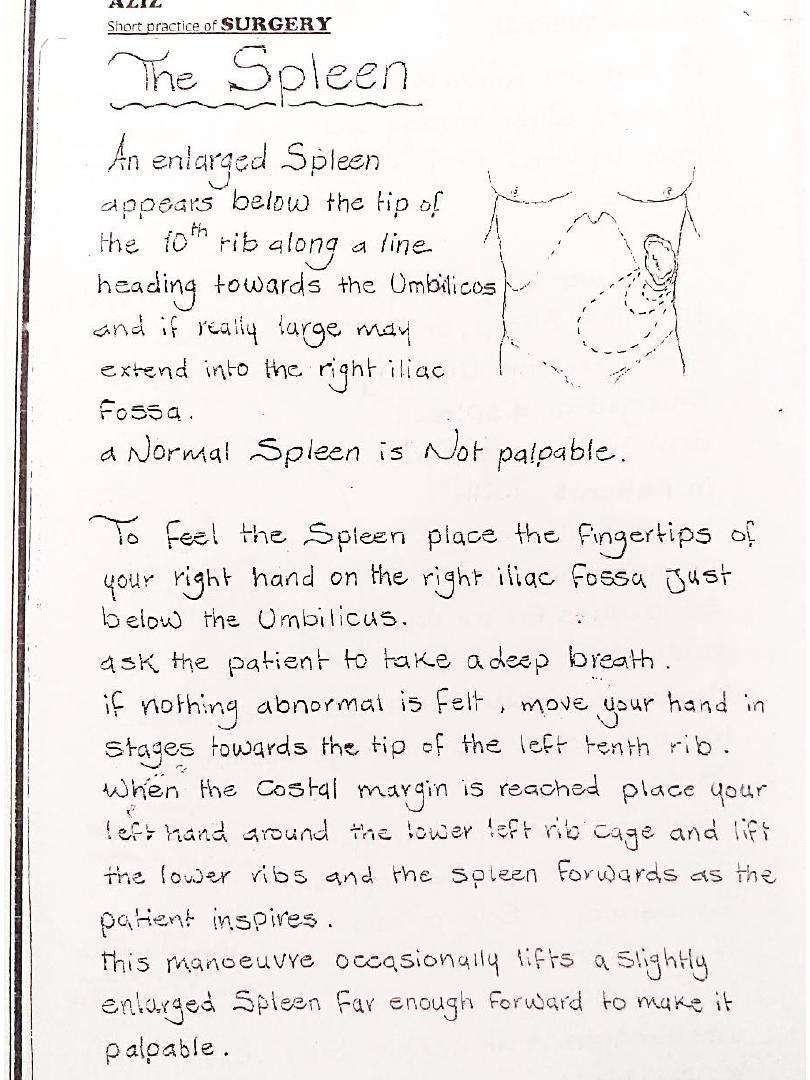 AZIZ
Short practice of SURGERY
The Spleen
An enlarged Spleen
appears below the tip of
the 10th rib along a line
heading towards the Umbilicos
and if really large may
extend into the right iliac
Fossa.
a Normal Spleen is Not palpable.
To feel the Spleen place the fingertips of
your right hand on the right iliac Fossa Just
below the Umbilicus.
ask the patient to take a deep breath.
if nothing abnormal is felt, move your hand in
stages towards the tip of the left tenth rib.
When the Costal margin is reached place your
left hand around the lower left rib cage and lift
the lower ribs and the spleen Forwards as the
patient inspires.
This manoeuvre occasionally lifts a slightly
enlarged Spleen far enough forward to make it
palpable.